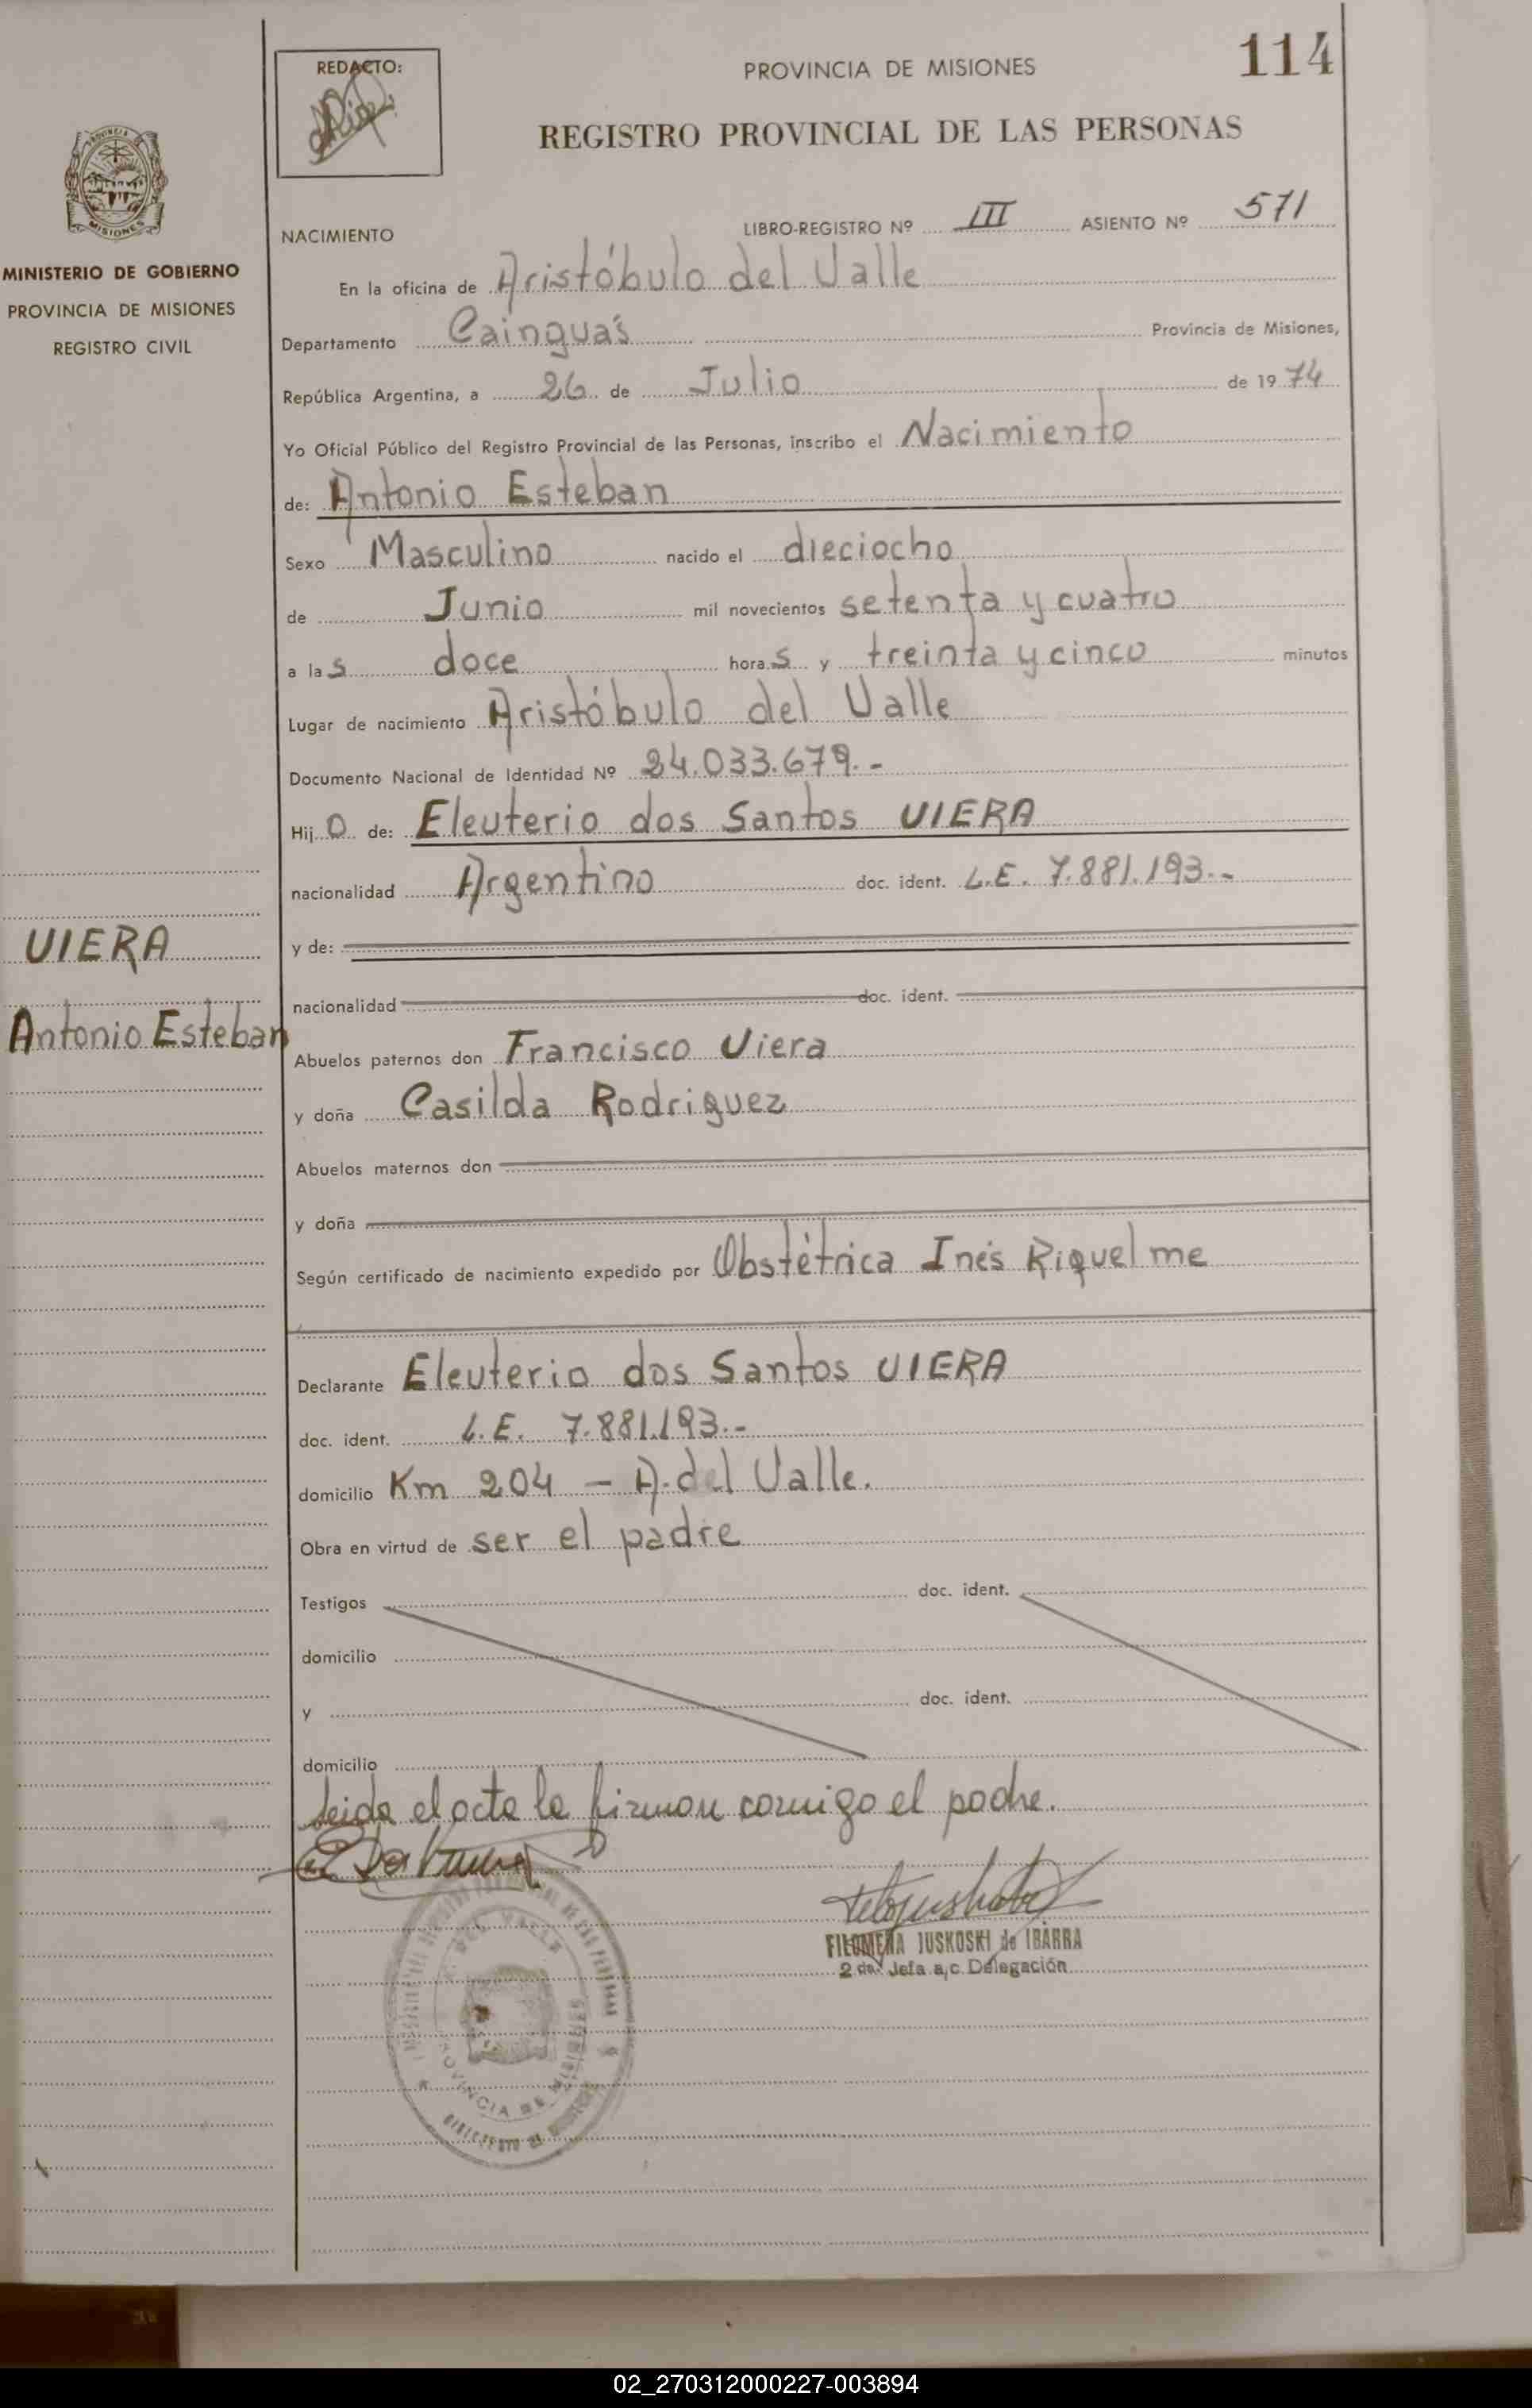 114
REDACTO:
PROVINCIA DE MISIONES
REGISTRO PROVINCIAL DE LAS PERSONAS
PROVINCIA
MISIONES
MINISTERIO DE GOBIERNO
PROVINCIA DE MISIONES
REGISTRO CIVIL
VIERA
Antonio Esteban
NACIMIENTO
LIBRO-REGISTRO Nº III ASIENTO Nº 571
En la oficina de Aristóbulo del Valle
Departamento Cainguás Provincia de Misiones,
República Argentina, a 26 de Julio de 1974
Yo Oficial Público del Registro Provincial de las Personas, inscribo el Nacimiento
de: Antonio Esteban
Sexo Masculino nacido el dieciocho
de Junio mil novecientos setenta y cuatro
a las doce horas y treinta y cinco minutos
Lugar de nacimiento Aristóbulo del Valle
Documento Nacional de Identidad Nº 24.033.679.-
Hijo de: Eleuterio dos Santos VIERA
nacionalidad Argentino doc. ident. L.E. 7.881.193.-
y de:
nacionalidad doc. ident.
Abuelos paternos don Francisco Viera
y doña Casilda Rodriguez
Abuelos maternos don
y doña
Según certificado de nacimiento expedido por Obstétrica Inés Riquelme
Declarante Eleuterio dos Santos VIERA
doc. ident. L.E. 7.881.193.-
domicilio Km 204 - A. del Valle.
Obra en virtud de ser el padre
Testigos doc. ident.
domicilio
y doc. ident.
domicilio
Leida el acta la firman conmigo el padre.
FILOMENA JUSKOSKI de IBARRA
2 da. Jefa a/c. Delegación
PROVINCIA DE MISIONES
02_270312000227-003894